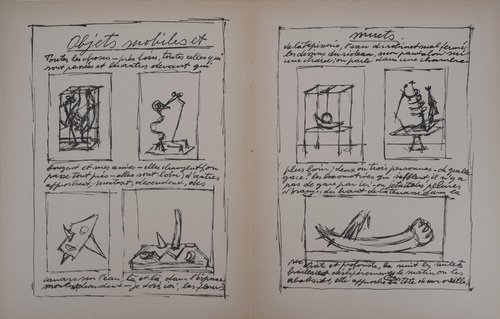 Objets mobiles et
Toutes les choses - près, loin, toutes celles qui
sont passées et les autres devant qui
bougent et mes amies - elles changent, on
passe tout près - elles sont loin, d'autres
approchent, montent, descendent, des
canards sur l'eau, là et là, dans l'espace
montent, descendent - je dors ici, les fleurs
muets.
de la tapisserie, l'eau du robinet mal fermé,
les dessins du rideau, mon pantalon sur
une chaise, on parle dans une chambre
plus loin; deux ou trois personnes - de quelle
gare? les locomotives qui sifflent il n'y a
pas de gare par ici - on jetait des pelures
d'orange du haut de la terrasse dans la
rue étroite et profonde, la nuit les mulets
désespérément le matin on les
abattait, elle approche sa tête